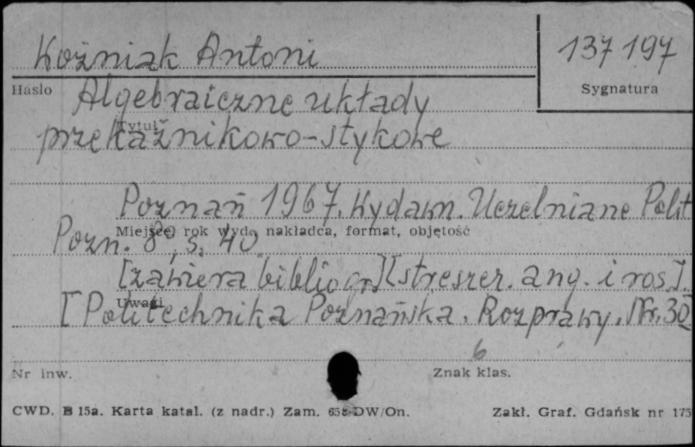 Woźniak Antoni
137 197
Hasło
Sygnatura
Algebraiczne układy
Tytuł
przekaźnikowo-stykowe
Poznań 1967. Wydawn. Uczelniane Polit.
Miejsce, rok wyd., nakładca, format, objętość
Pozn. 8°, s. 40
[zawiera bibliogr.] [streszcz. ang. i ros.].
Uwagi
[Politechnika Poznańska. Rozprawy. Nr. 30]
6
Nr inw.
Znak klas.
CWD. B 15a. Karta katal. (z nadr.) Zam. DW/On.
Zakł. Graf. Gdańsk nr 175